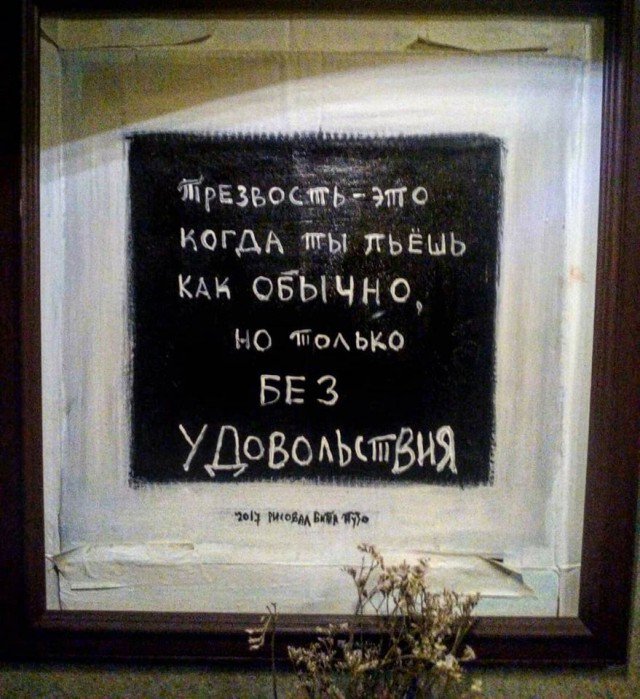 трезвость - это
когда ты пьёшь
как обычно,
но только
БЕЗ
удовольствия
2017 рисовал